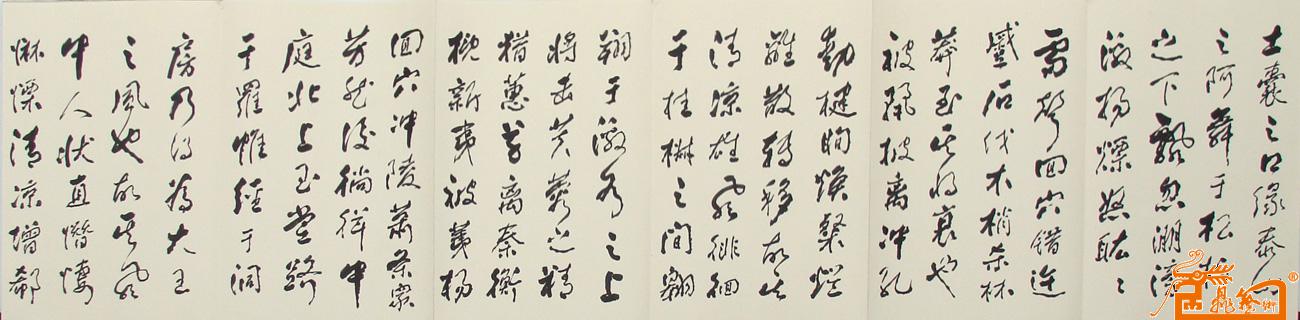 土囊之口緣泰山
之阿舞于松柏
之下飄忽淜滂
激揚熛怒耾〻
雷聲回穴錯迕
蹷石伐木梢殺林
莽至其將衰也
被麗披離沖孔
動楗眴煥粲爛
離散轉移故其
清凉雄風徘徊
于桂椒之間翱
翔于激水之上
將擊芙蓉之精
獵蕙草離秦衡
概新夷被荑楊
回穴沖陵蕭條衆
芳然後徜徉中
庭北上玉堂躋
于羅帷經于洞
房乃得為大王
之風也故其風
中人狀直憯悽
惏慄清凉增欷